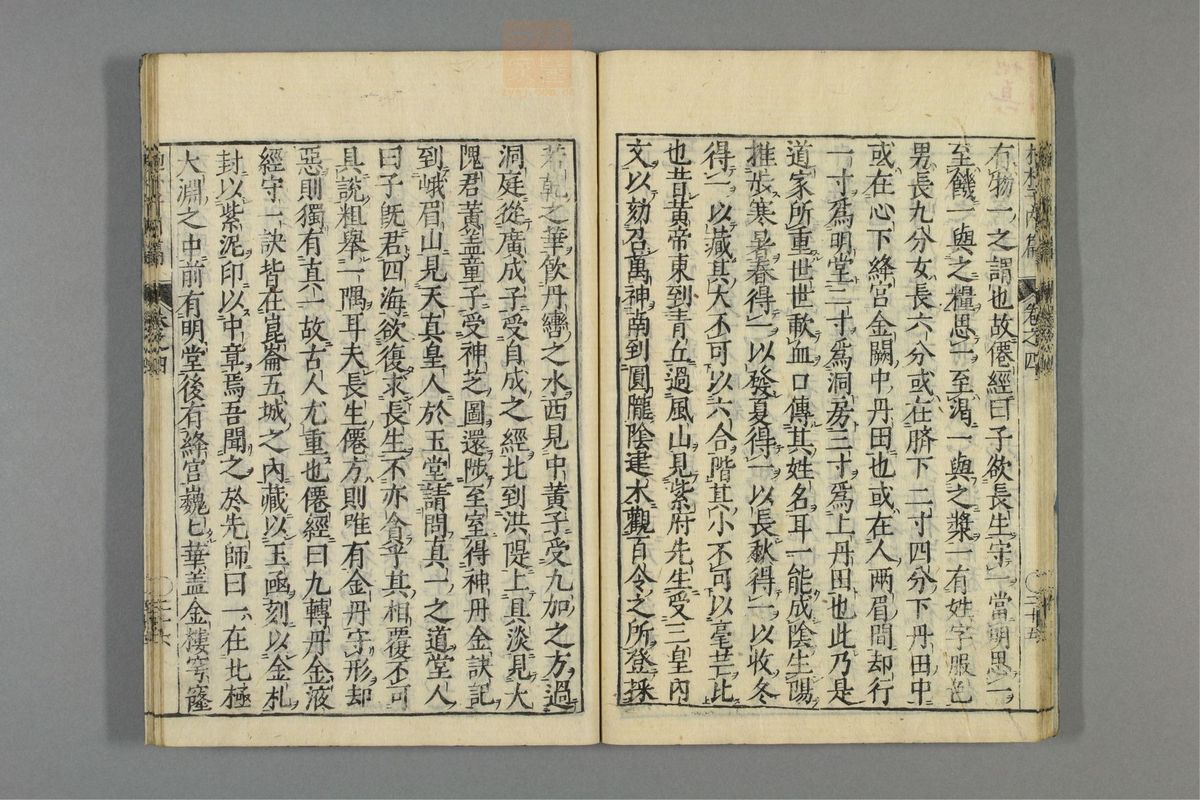 有物一之謂也故僊經曰子欲長生守一當明思一
至饑一與之糧思一至渴一與之漿一有姓字服色
男長九分女長六分或在臍下二寸四分下丹田中
或在心下絳宮金闕中丹田也或在人兩眉間却行
一寸爲明堂二寸爲洞房三寸爲上丹田也此乃是
道家所重世世歃血口傳其姓名耳一能成陰生陽
推步寒暑春得一以發夏得一以長秋得一以收冬
得一以藏其大不可以六合階其小不可以毫芒比
也昔黃帝東到青丘過風山見紫府先生受三皇內
文以劾召萬神南到圓隴陰建木觀百令之所登採
若乾之華飲丹巒之水西見中黃子受九加之方過
洞庭從廣成子受自成之經北到洪隄上具淡見大
隗君黃盖童子受神芝圖還陟至室得神丹金訣記
到峨眉山見天真皇人於玉堂請問真一之道堂人
曰子既君四海欲復求長生不亦貪乎其相覆不可
具說粗舉一隅耳夫長生僊方則唯有金丹守形却
惡則獨有真一故古人尤重也僊經曰九轉丹金液
經守一訣皆在崑崙五城之內藏以玉凾刻以金札
封以紫泥印以中章焉吾聞之於先師曰一在北極
大淵之中前有明堂後有絳宮巍巳華盖金樓穹窿